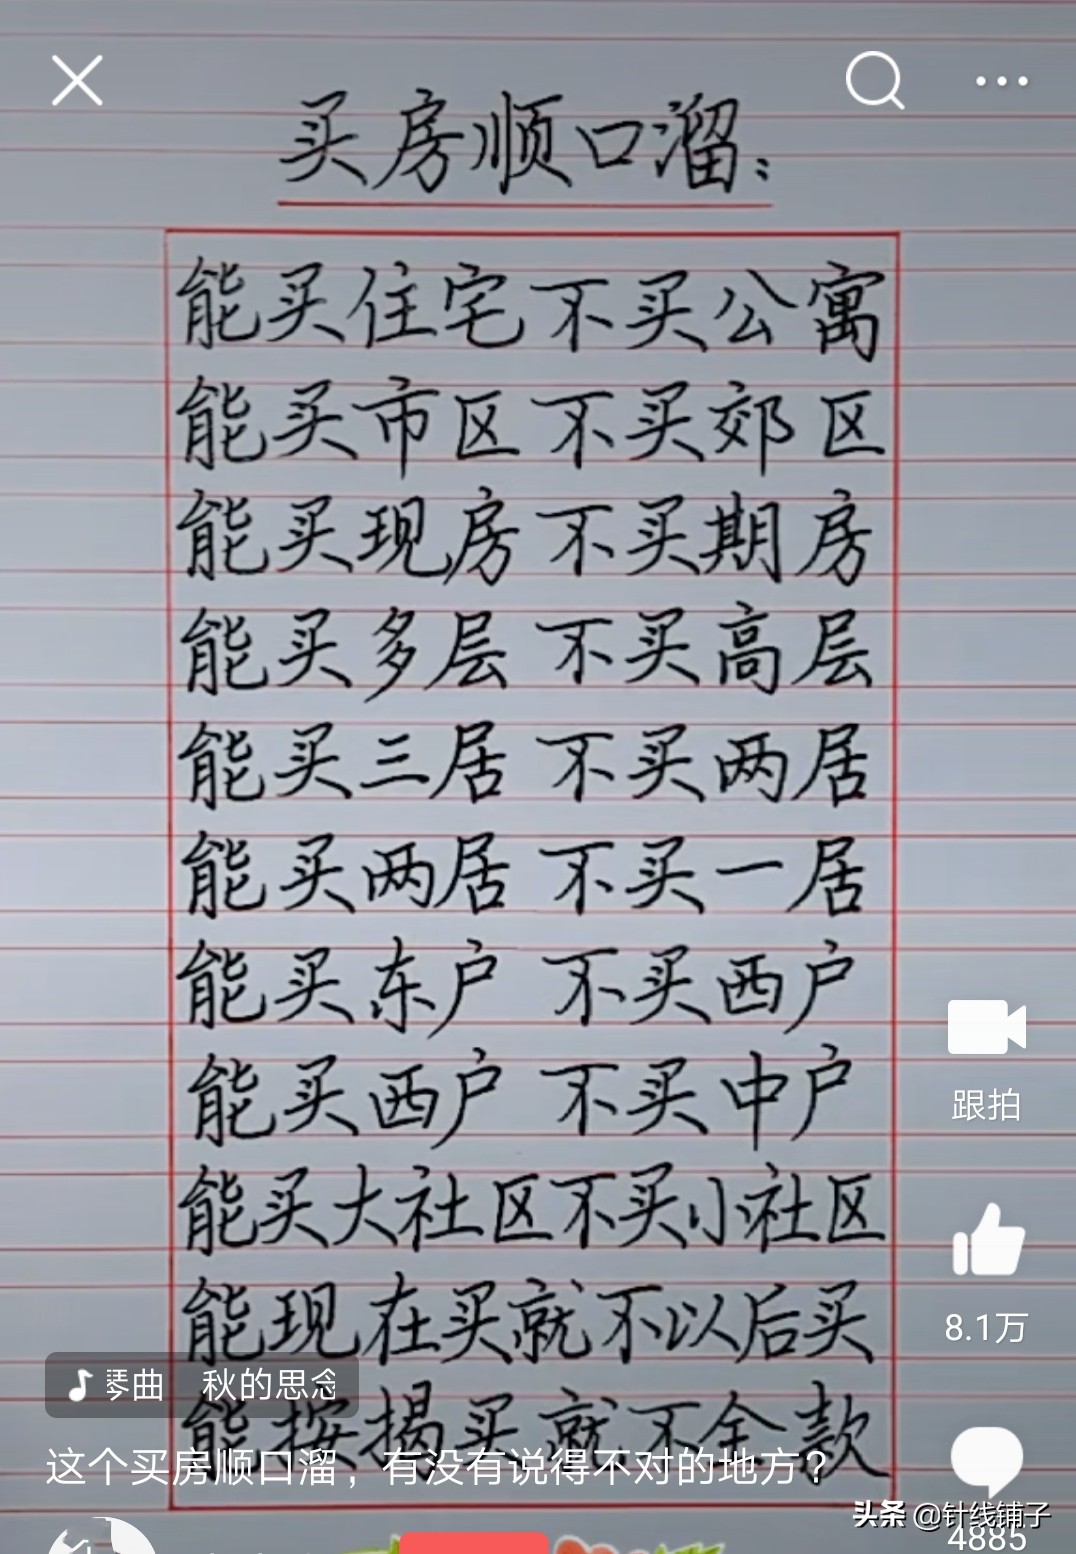 买房顺口溜：
能买住宅不买公寓
能买市区不买郊区
能买现房不买期房
能买多层不买高层
能买三居不买两居
能买两居不买一居
能买东户不买西户
能买西户不买中户
能买大社区不买小社区
能现在买就不以后买
能按揭买就不全款
跟拍
8.1万
琴曲 秋的思念
这个买房顺口溜，有没有说得不对的地方？
头条 @针线铺子
4885